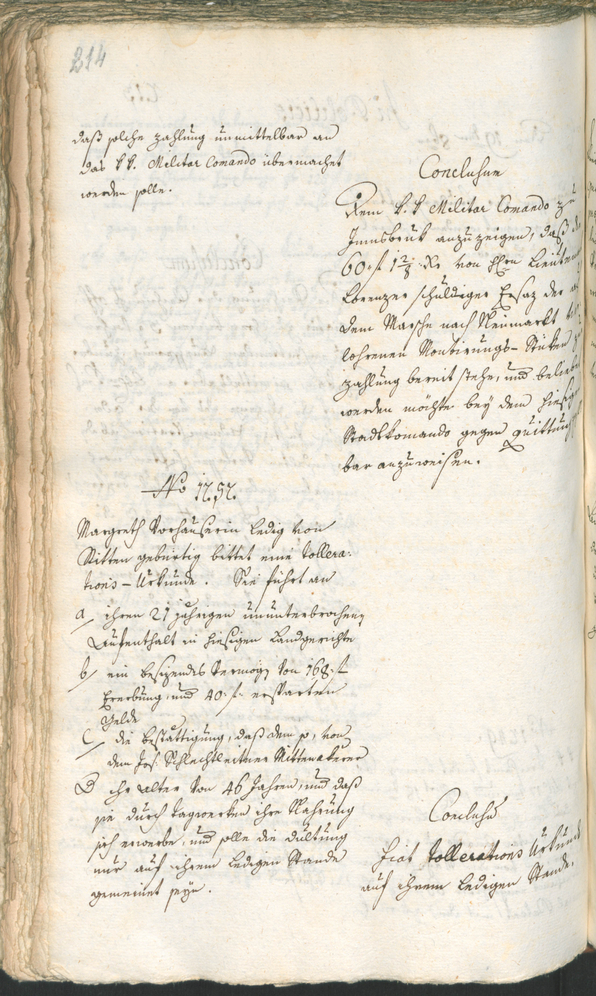 214
daß solche zahlung unmittelbar an
das k. k. Militar Comando übermachet
werden solle.
Conclusum
Dem k. k. Militar Comando zu
Innsbruk anzuzeigen, daß
60 f 1 2/3 Xr von Hrn Lieut
Lorenzer schuldiger Ersaz der
dem Marsche nach Neumarkt
lohrenen Montirungs-Stüken
zahlung bereit stehe, und belieb
werden möchte bey dem hiesig
Stadtkomando gegen Quittung
bar anzuweisen.
No 1757.
Margreth Vorhauserin ledig von
Ritten gebürtig bittet eine Tollera-
tions-Urkunde. Sie führt an
a/ ihren 21 jährigen ununterbrochenen
Aufenthalt in hiesigen Landgerichte
b/ ein besizendes Vermög von 168 f
Ererbung, und 40 f ersparten
Gelde
c/ die bestättigung, daß dem so, von
dem Jos. Schlechtleitner Rittenakerer
D ihr Alter von 46 Jahren, und daß
sie durch tagwerken ihre Nahrung
sich erwerbe, und solle die dultung
nur auf ihrem ledigen Stande
gemeint seyn.
Conclusum
fiat Tollerations Urkund
auf ihrem ledigen Stande.